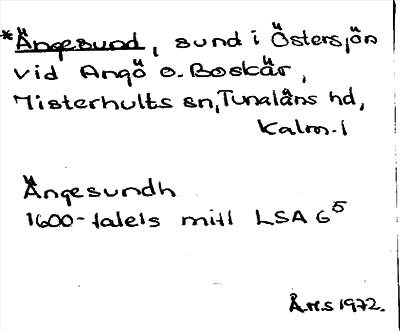 *Ängesund, sund i Östersjön
vid Angö o. Boskär,
Misterhults sn, Tunaläns hd,
Kalm. l
Ängesundh
1600-talets mitt LSA G5
Å.H.S 1972.